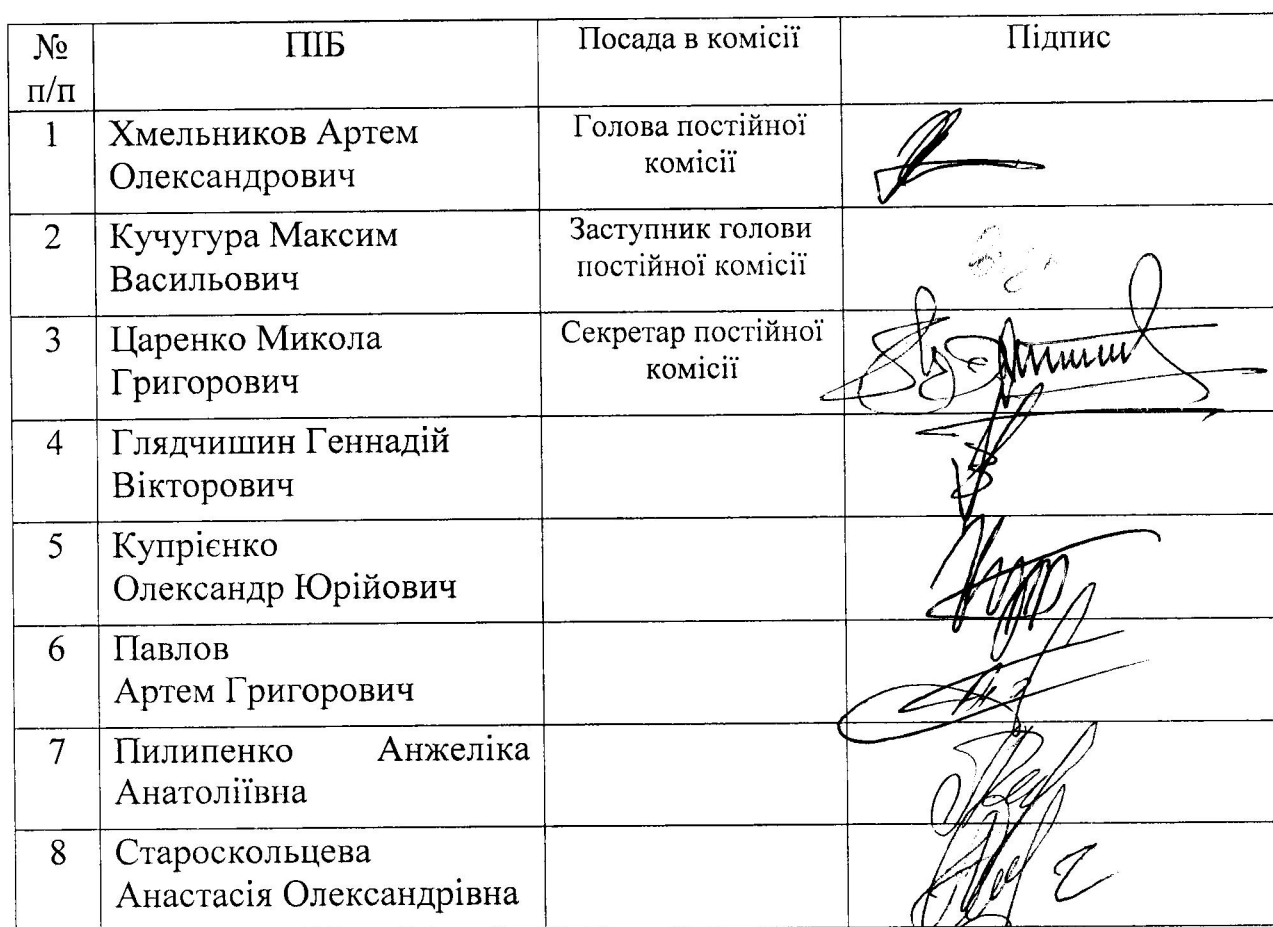 № п/п ПІБ Посада в комісії Підпис
1 Хмельников Артем Олександрович Голова постійної комісії
2 Кучугура Максим Васильович Заступник голови постійної комісії
3 Царенко Микола Григорович Секретар постійної комісії
4 Глядчишин Геннадій Вікторович
5 Купрієнко Олександр Юрійович
6 Павлов Артем Григорович
7 Пилипенко Анжеліка Анатоліївна
8 Староскольцева Анастасія Олександрівна